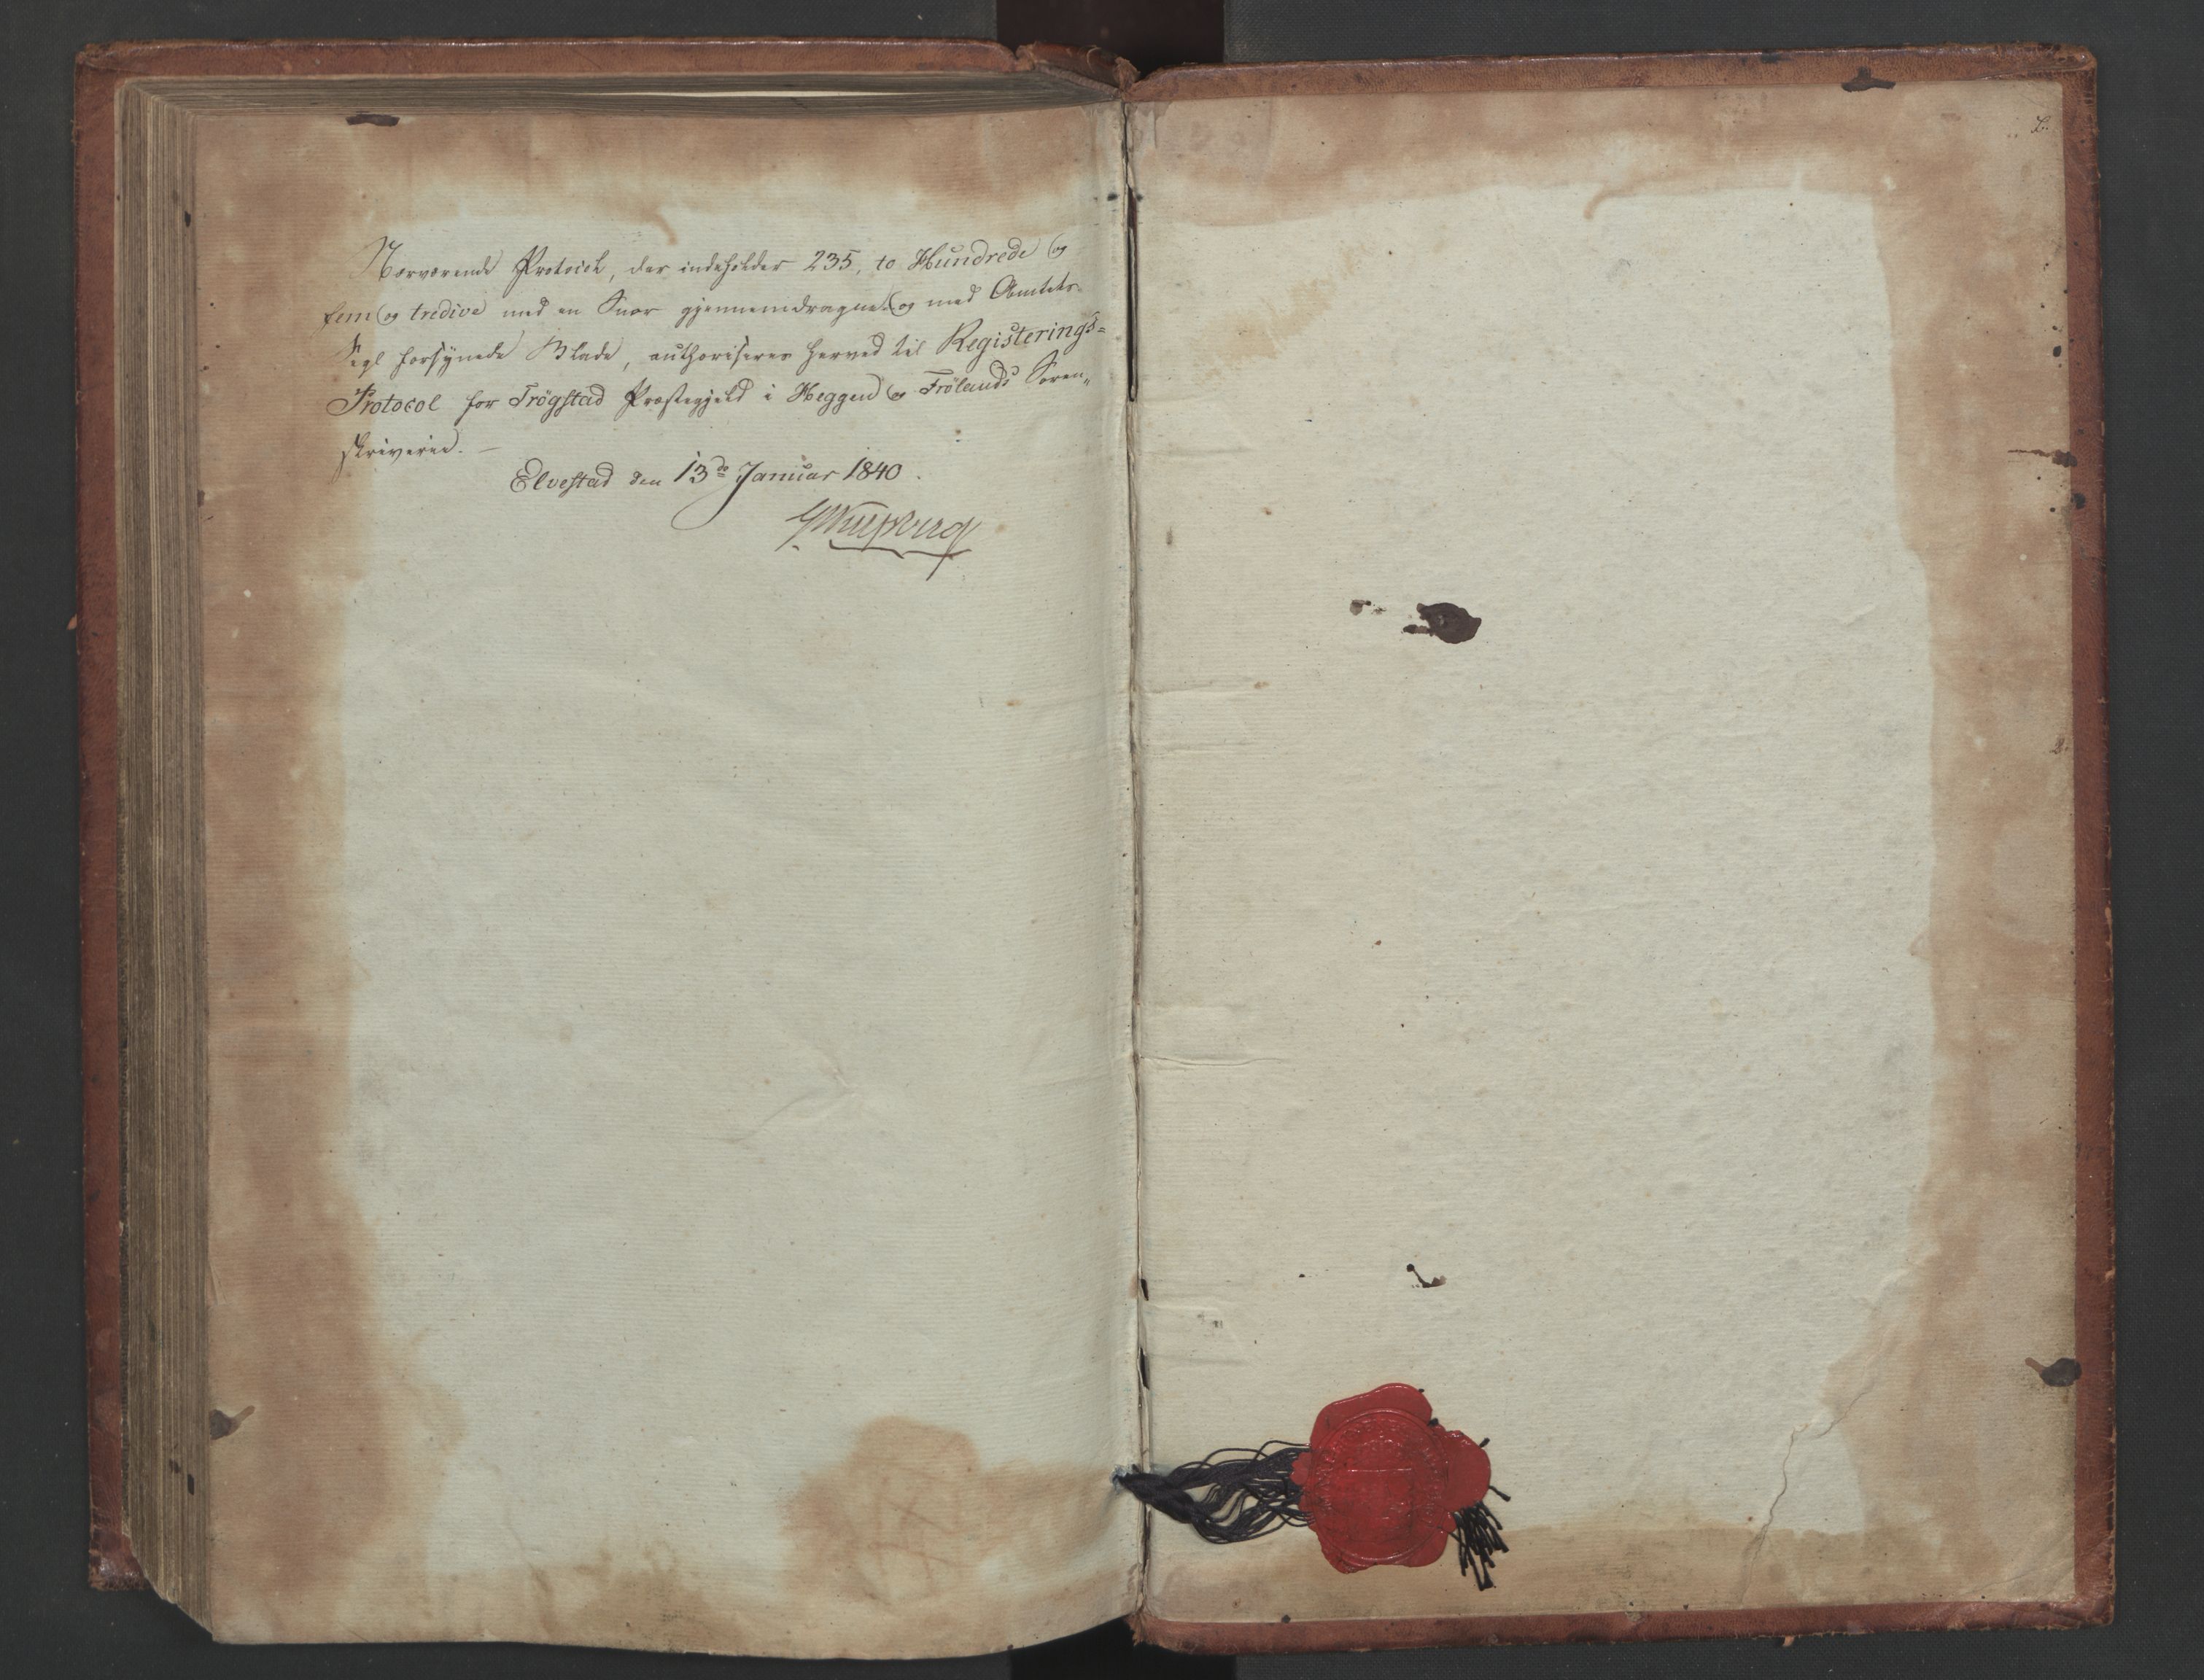 Nærværende Protocol, der indeholder 235, to Hundrede og
fem og tredive med en Snor gjennemdragne og med Amtets
Segl forsynede Blade, authoriseres herved til Registerings=
Protocol for Trögstad Præstegjeld i Heggen og Frölands Soren„
skriverie. —
Elvestad den 13de Januar 1840.